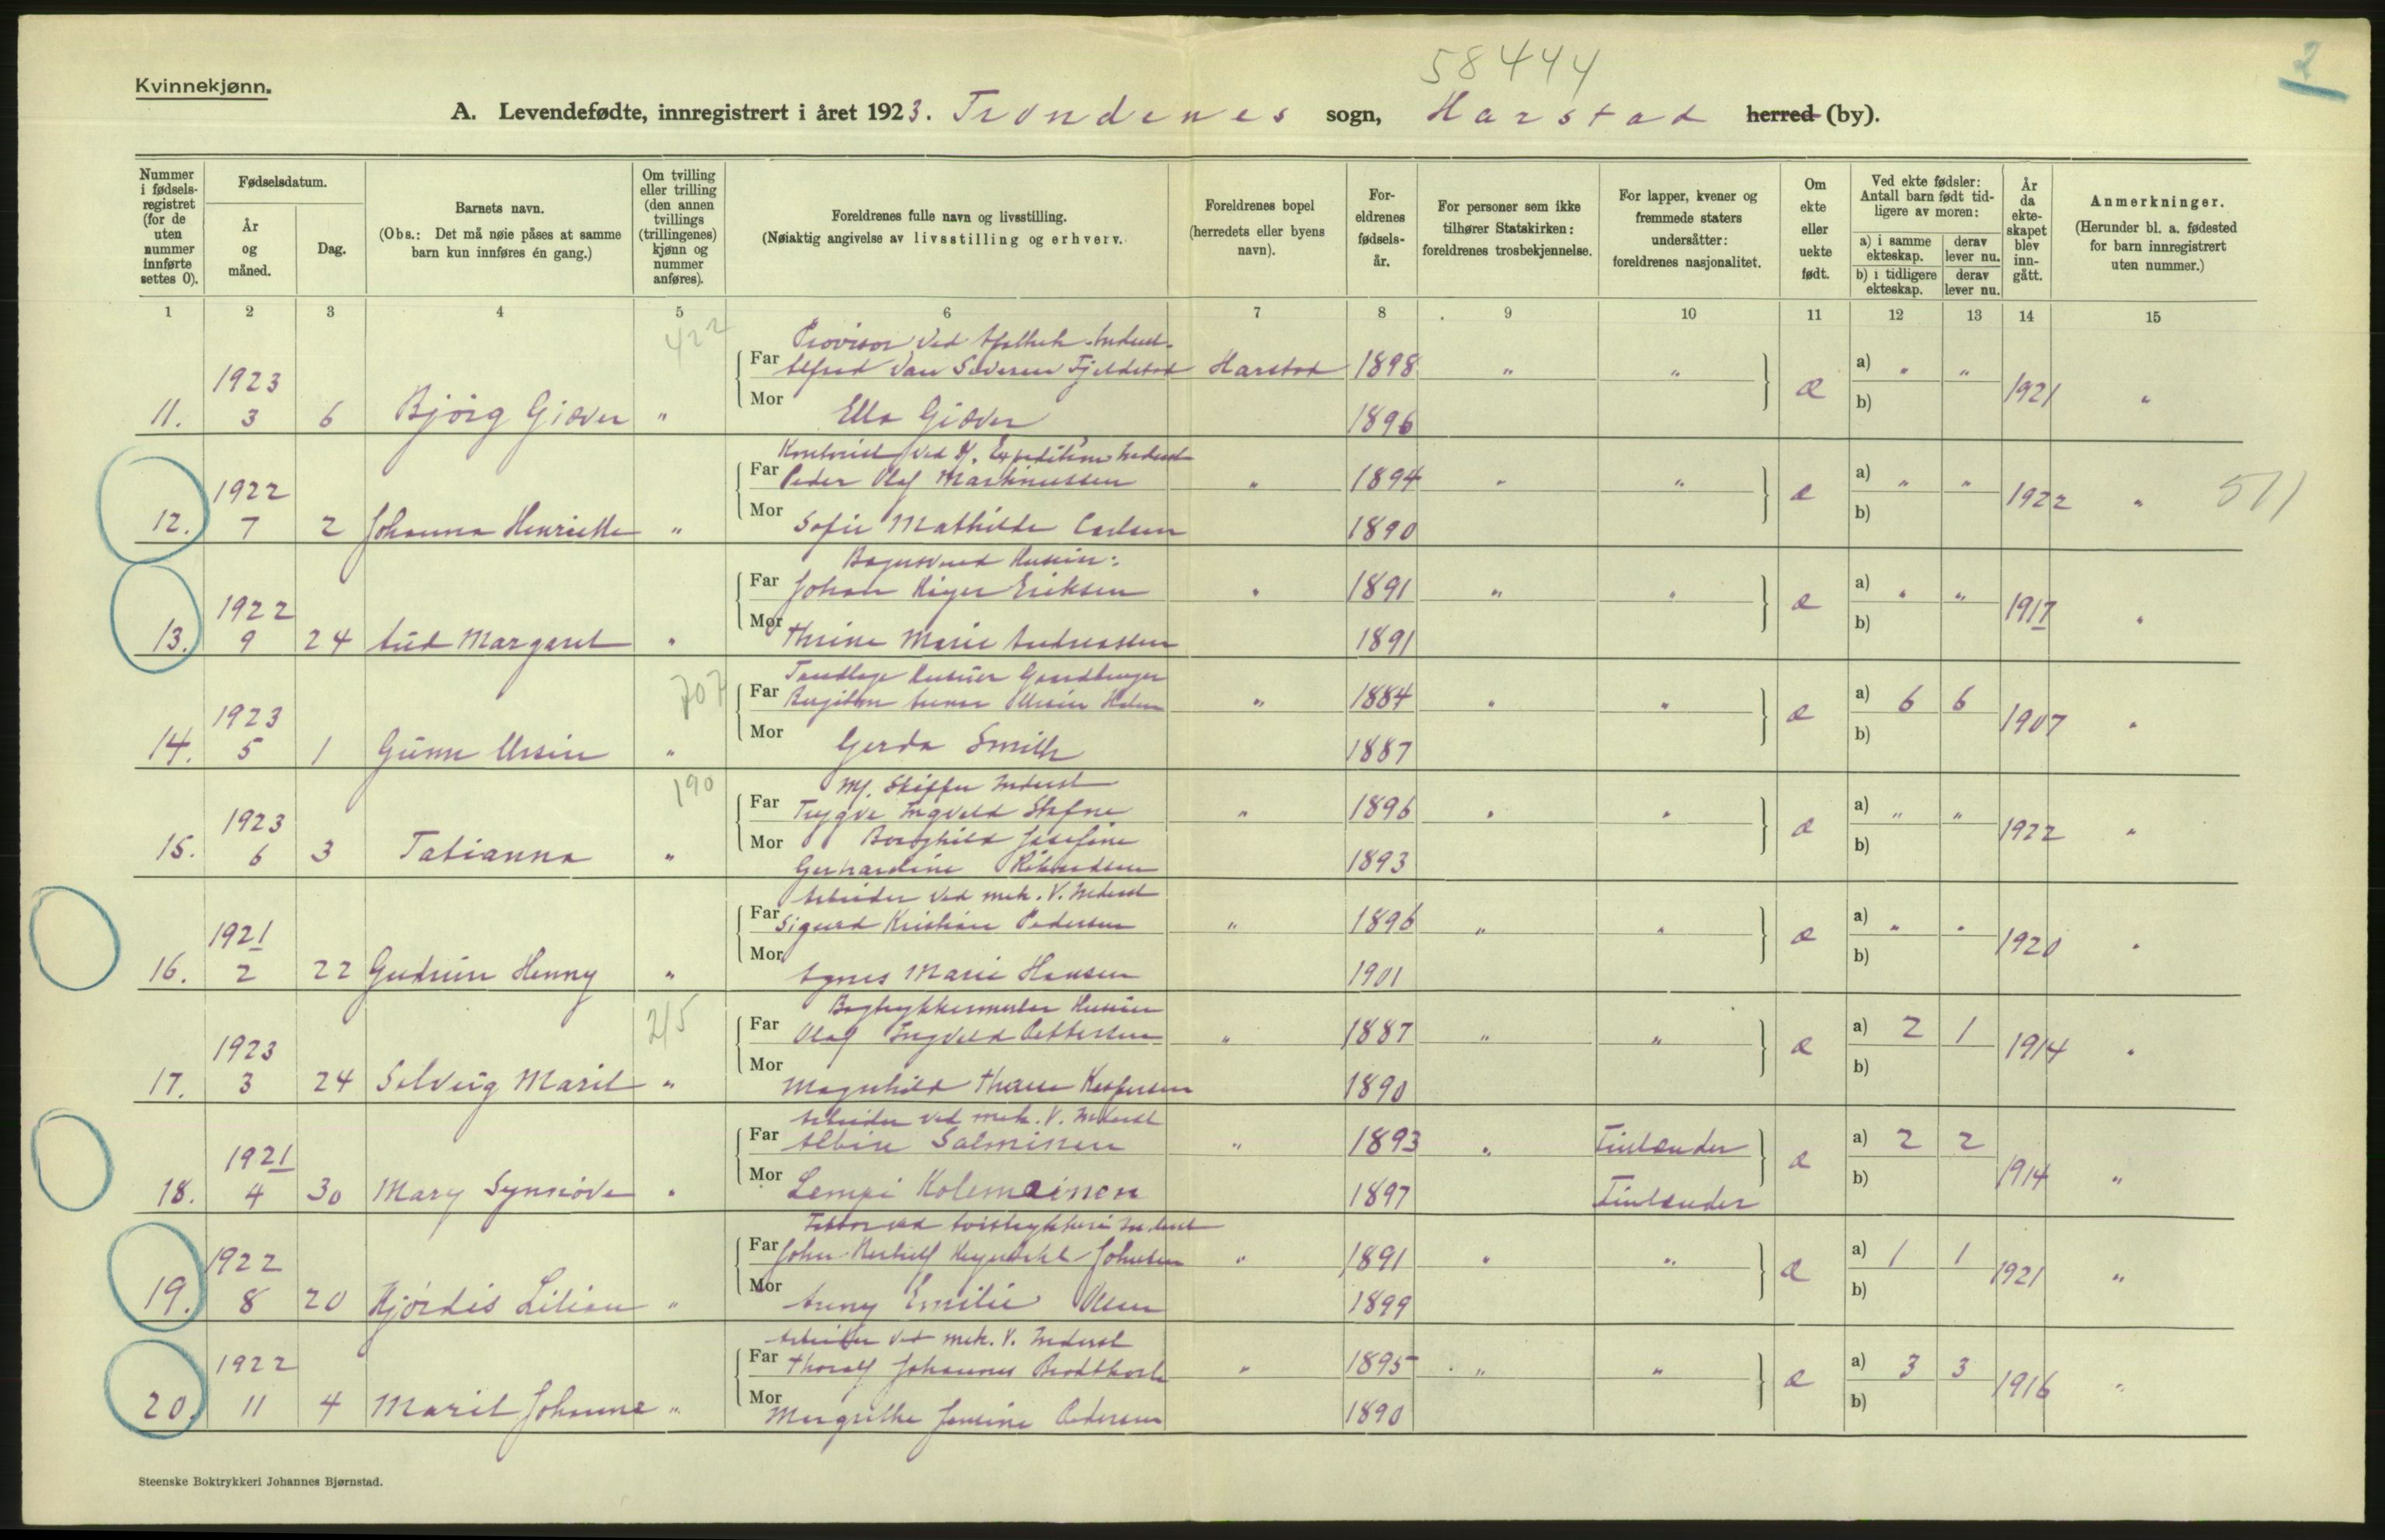 58444
2
Kvinnekjønn.
A. Levendefødte, innregistrert i året 1923. Trondenes sogn, Harstad herred (by).
Nummer i fødsels-registret (for de uten nummer innførte settes 0).
Fødselsdatum.
År og måned.
Dag.
Barnets navn.
(Obs.: Det må nøie påses at samme barn kun innføres én gang.)
Om tvilling eller trilling (den annen tvillings (trillingenes) kjønn og nummer anføres).
Foreldrenes fulle navn og livsstilling.
(Nøiaktig angivelse av livsstilling og erhverv.
Foreldrenes bopel (herredets eller byens navn).
For-eldrenes fødsels-år.
For personer som ikke tilhører Statskirken: foreldrenes trosbekjennelse.
For lapper, kvener og fremmede staters undersåtter: foreldrenes nasjonalitet.
Om ekte eller uekte født.
Ved ekte fødsler: Antall barn født tid-ligere av moren:
a) i samme ekteskap.
derav lever nu.
b) i tidligere ekteskap.
derav lever nu.
År da ekte-skapet blev inn-gått.
Anmerkninger.
(Herunder bl. a. fødested for barn innregistrert uten nummer.)
1 2 3 4 5 6 7 8 9 10 11 12 13 14 15
422
Provisor ved Apothek
Far Alfred Harstad 1898 " " a) " "
1923
11. 3 6 Bjørg Giæver " Mor Ella Giæver 1896 æ b) 1921 "
Kontorist ved
Far Peder Olaf Martinussen " 1894 " " a) " "
1922
12. 7 2 Johanna Henriette " Mor Sofie Mathilde Carlsen 1890 æ b) 1922 " 511
Far Johan Eriksen " 1891 " " a) " "
1922
13. 9 24 Aud Margaret " Mor Marie Andreassen 1891 æ b) 1917 "
707
Far " 1884 " " a) 6 6
1923
14. 5 1 Gunn Ursin " Mor Gerda Smith 1887 æ b) 1907 "
190
Far Trygve Ingvald " 1896 " " a) " "
1923
15. 6 3 Tatianna " Mor Borghild Josefine
Gerhardine 1893 æ b) 1922 "
Arbeider ved mek. V.
Far Sigurd Kristian Pedersen " 1896 " " a) " "
1921
16. 2 22 Gudrun Henny " Mor Agnes Marie Hansen 1901 æ b) 1920 "
215
Far Olaf Ingvald Pettersen " 1887 " " a) 2 1
1923
17. 3 24 Solveig Marit " Mor Magnhild Kaspersen 1890 æ b) 1914 "
Arbeider ved mek. V.
Far Albin Salminen " 1893 " Finlænder a) 2 2
1921
18. 4 30 Mary Synnøve " Mor Lempi Kolemainen 1897 Finlænder æ b) 1914 "
Far John Johnsen " 1891 " " a) 1 1
1922
19. 8 20 Hjørdis Lilian " Mor Anny Emilie Olsen 1899 æ b) 1921 "
Arbeider ved mek. V.
Far Thoralf Johannes " 1895 " " a) 3 3
1922
20. 11 4 Marit Johanne " Mor Jensine Pedersen 1890 æ b) 1916 "
Steenske Boktrykkeri Johannes Bjørnstad.